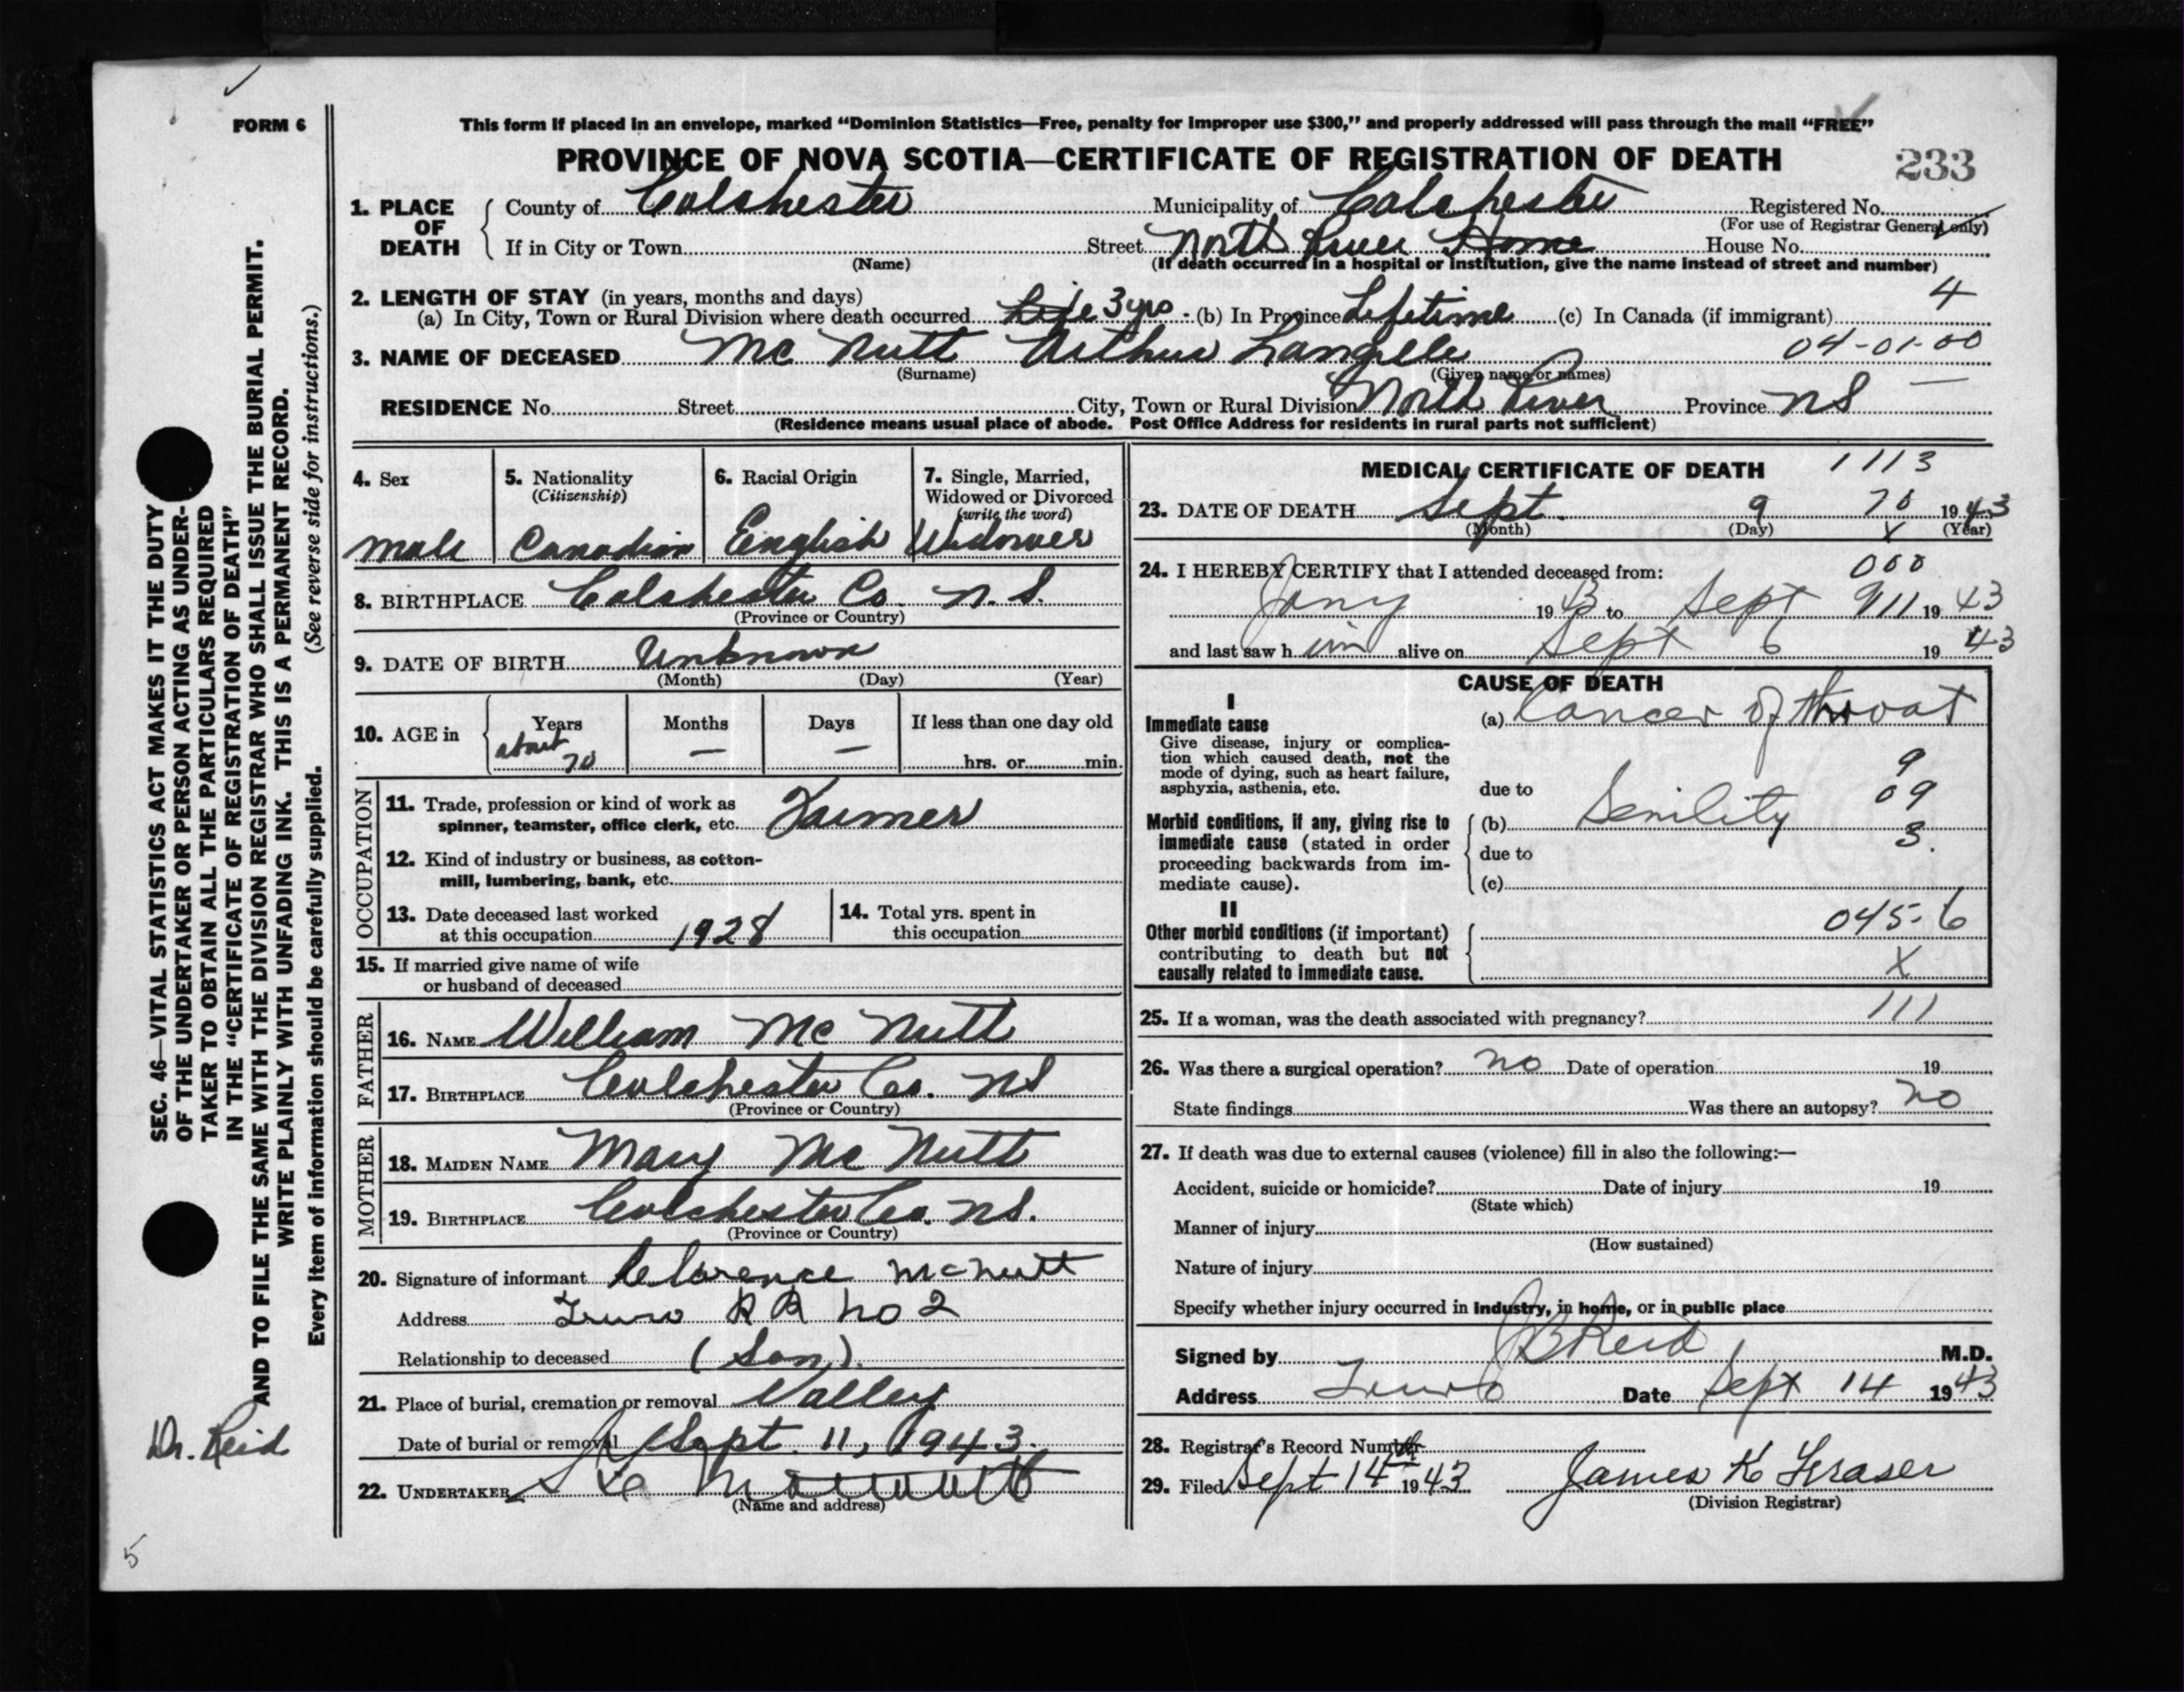 FORM 6
This form if placed in an envelope, marked “Dominion Statistics—Free, penalty for improper use $300,” and properly addressed will pass through the mail “FREE”
PROVINCE OF NOVA SCOTIA—CERTIFICATE OF REGISTRATION OF DEATH
233
1. PLACE OF DEATH
County of Colchester Municipality of Colchester Registered No.
(For use of Registrar General only)
If in City or Town Street North River Home House No.
(Name) (If death occurred in a hospital or institution, give the name instead of street and number)
2. LENGTH OF STAY (in years, months and days) 4
(a) In City, Town or Rural Division where death occurred 3 yrs - (b) In Province Lifetime (c) In Canada (if immigrant)
3. NAME OF DECEASED Mc Nutt Arthur Langille 04-01-00
(Surname) (Given name or names)
RESIDENCE No. Street City, Town or Rural Division North River Province NS
(Residence means usual place of abode. Post Office Address for residents in rural parts not sufficient)
4. Sex
Male
5. Nationality
(Citizenship)
Canadian
6. Racial Origin
English
7. Single, Married,
Widowed or Divorced
(write the word)
Widower
8. BIRTHPLACE Colchester Co. N.S.
(Province or Country)
9. DATE OF BIRTH Unknown
(Month) (Day) (Year)
10. AGE in Years Months Days If less than one day old
about 70 — — hrs. or min.
OCCUPATION
11. Trade, profession or kind of work as
spinner, teamster, office clerk, etc. Farmer
12. Kind of industry or business, as cotton-
mill, lumbering, bank, etc.
13. Date deceased last worked
at this occupation 1928
14. Total yrs. spent in
this occupation
15. If married give name of wife
or husband of deceased
FATHER
16. NAME William Mc Nutt
17. BIRTHPLACE Colchester Co. NS
(Province or Country)
MOTHER
18. MAIDEN NAME Mary Mc Nutt
19. BIRTHPLACE Colchester Co. NS.
(Province or Country)
20. Signature of informant Clarence McNutt
Address Truro R R No 2
Relationship to deceased (Son).
21. Place of burial, cremation or removal Valley
Date of burial or removal Sept. 11, 1943.
22. UNDERTAKER
(Name and address)
MEDICAL CERTIFICATE OF DEATH 1113
23. DATE OF DEATH Sept. 9 70 1943
(Month) (Day) X (Year)
24. I HEREBY CERTIFY that I attended deceased from: 000
Jany 1943 to Sept 9 111 1943
and last saw him alive on Sept 6 1943
CAUSE OF DEATH
I
Immediate cause
Give disease, injury or complica-
tion which caused death, not the
mode of dying, such as heart failure,
asphyxia, asthenia, etc.
(a) Cancer of throat
9
due to 09
Morbid conditions, if any, giving rise to
immediate cause (stated in order
proceeding backwards from im-
mediate cause).
(b) Senility
due to 3.
(c)
II
Other morbid conditions (if important)
contributing to death but not
causally related to immediate cause.
045-6
X
25. If a woman, was the death associated with pregnancy? 111
26. Was there a surgical operation? No Date of operation 19
State findings Was there an autopsy? No
27. If death was due to external causes (violence) fill in also the following:—
Accident, suicide or homicide? Date of injury 19
(State which)
Manner of injury
(How sustained)
Nature of injury
Specify whether injury occurred in industry, in home, or in public place
Signed by JB Reid M.D.
Address Truro Date Sept 14 1943
28. Registrar's Record Number
29. Filed Sept 14th 1943 James K Fraser
(Division Registrar)
SEC. 46—VITAL STATISTICS ACT MAKES IT THE DUTY
OF THE UNDERTAKER OR PERSON ACTING AS UNDER-
TAKER TO OBTAIN ALL THE PARTICULARS REQUIRED
IN THE “CERTIFICATE OF REGISTRATION OF DEATH”
AND TO FILE THE SAME WITH THE DIVISION REGISTRAR WHO SHALL ISSUE THE BURIAL PERMIT.
WRITE PLAINLY WITH UNFADING INK. THIS IS A PERMANENT RECORD.
Every item of information should be carefully supplied. (See reverse side for instructions.)
Dr. Reid
5